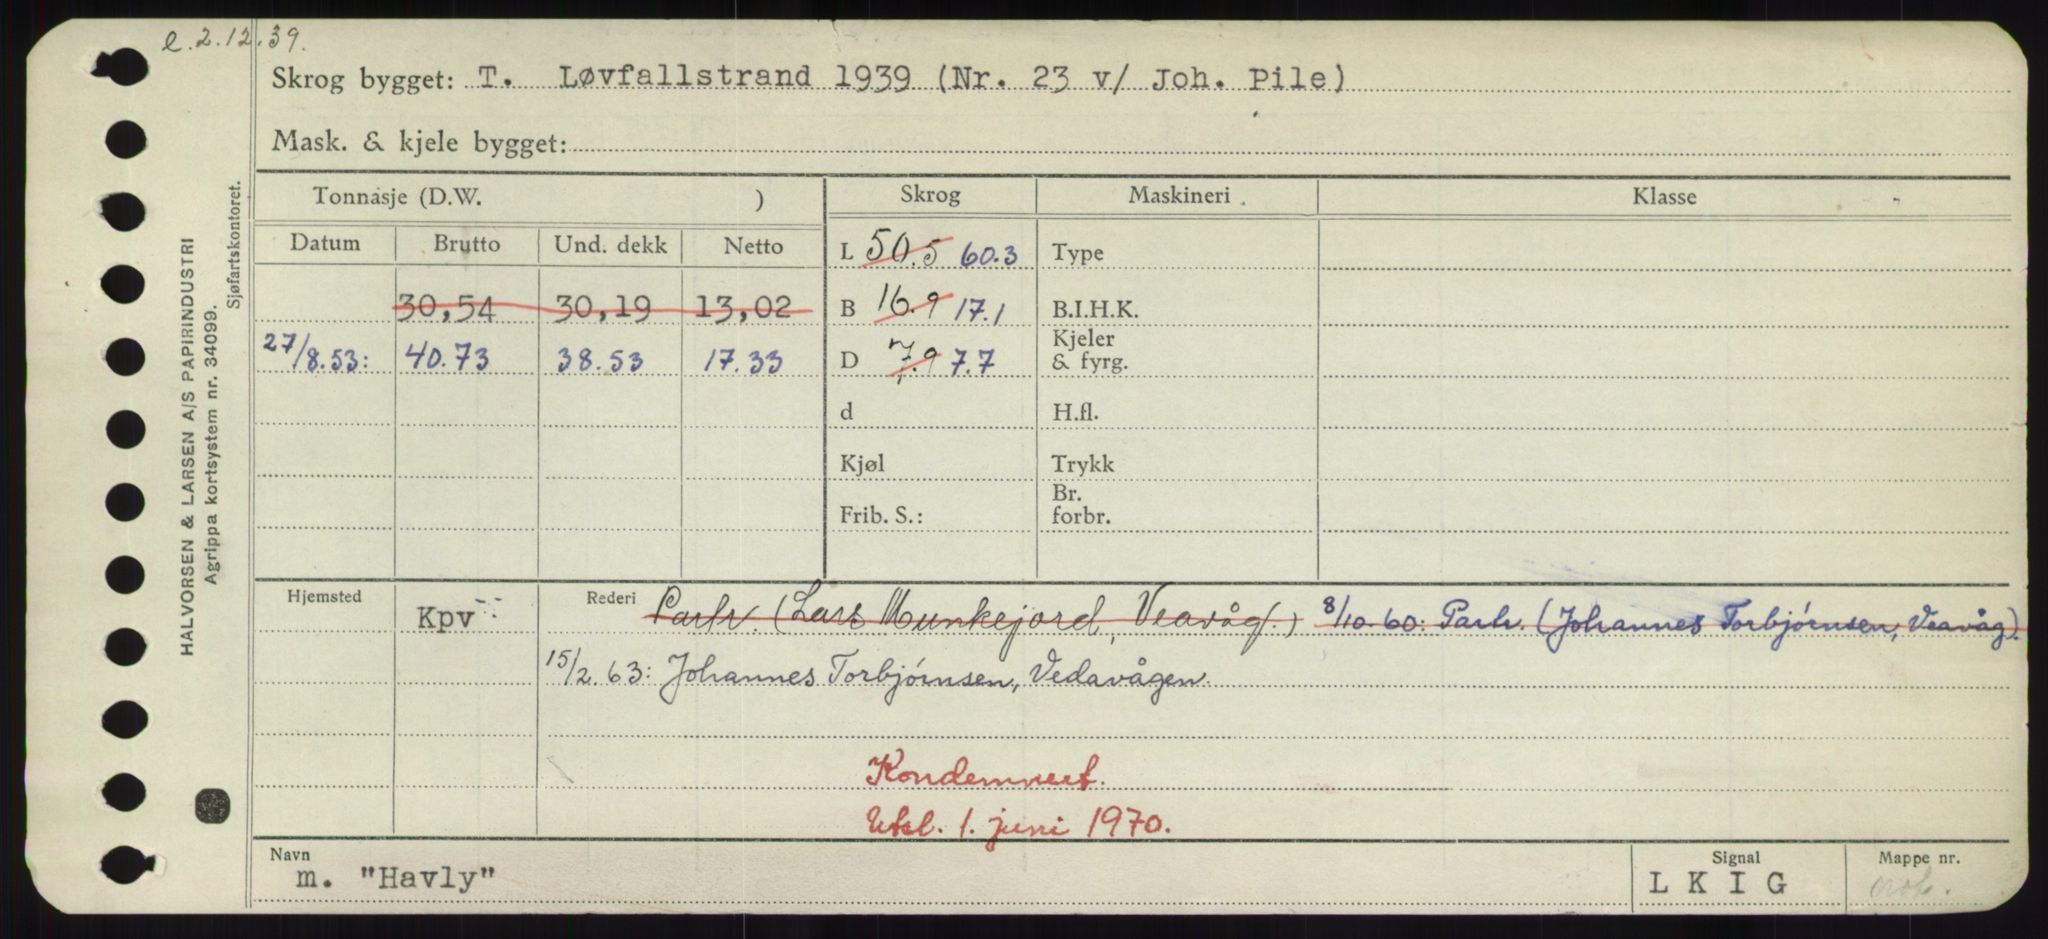 e. 2.12.39.
Skrog bygget: T. Løvfallstrand 1939 (Nr. 23 v/ Joh. Pile)
Mask. & kjele bygget:
Tonnasje (D.W. ) Skrog Maskineri Klasse
Datum Brutto Und. dekk Netto L 50.5 60.3 Type
30,54 30,19 13,02 B 16.9 17.1 B.I.H.K.
27/8.53: 40.73 38.53 17.33 D 7.9 7.7 Kjeler & fyrg.
d H.fl.
Kjøl Trykk
Frib. S.: Br. forbr.
Hjemsted Kpv Rederi Partr. (Lars Munkejord, Veavåg.) 8/10-60: Partr. (Johannes Torbjørnsen, Veavåg).
15/2.63: Johannes Torbjørnsen, Vedavågen.
Kondemnert.
Utsl. 1. juni 1970.
Navn Signal Mappe nr.
m. "Havly" L K I G
HALVORSEN & LARSEN A/S PAPIRINDUSTRI
Agrippa kortsystem nr. 34099.
Sjøfartskontoret.